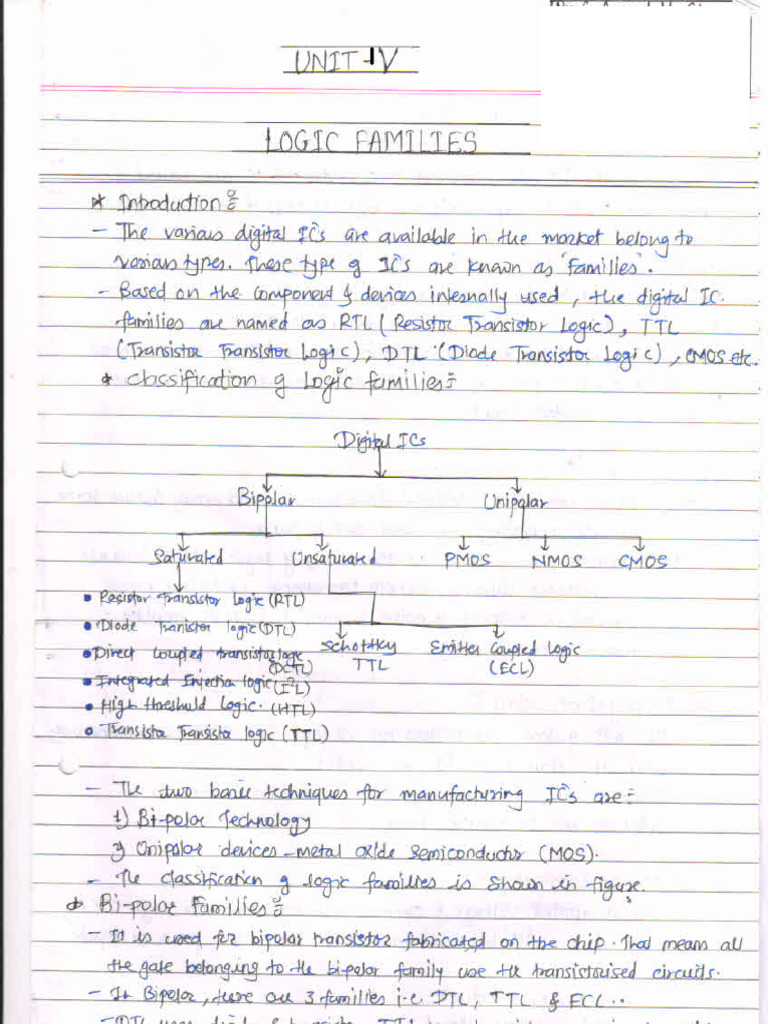 UNIT-IV
LOGIC FAMILIES
* Introduction :-
- The various digital ICs are available in the market belong to
various types. These type of ICs are known as 'families'.
- Based on the component & devices internally used, the digital IC
families are named as RTL (Resistor Transistor Logic), TTL
(Transistor Transistor Logic), DTL (Diode Transistor Logic), CMOS etc.
* Classification of Logic families :-
Digital ICs
Bipolar Unipolar
Saturated Unsaturated PMOS NMOS CMOS
• Resistor Transistor Logic (RTL)
• Diode Tranistor logic (DTL)
• Direct Coupled transistor logic
(DCTL)
Schottky Emitter Coupled Logic
TTL (ECL)
• Integrated Injection logic (I²L)
• High threshold Logic. (HTL)
• Transistor Transistor logic (TTL)
- The two basic techniques for manufacturing ICs are :-
1) Bi-polar Technology
2) Unipolar devices - metal oxide Semiconductor (MOS).
- The classification of logic families is shown in figure.
* Bi-polar Families :-
- It is used for bipolar transistor fabricated on the chip. That means all
the gate belonging to the bipolar family use the transistorised circuits.
- In Bipolar, there are 3 families i.e. DTL, TTL & ECL..